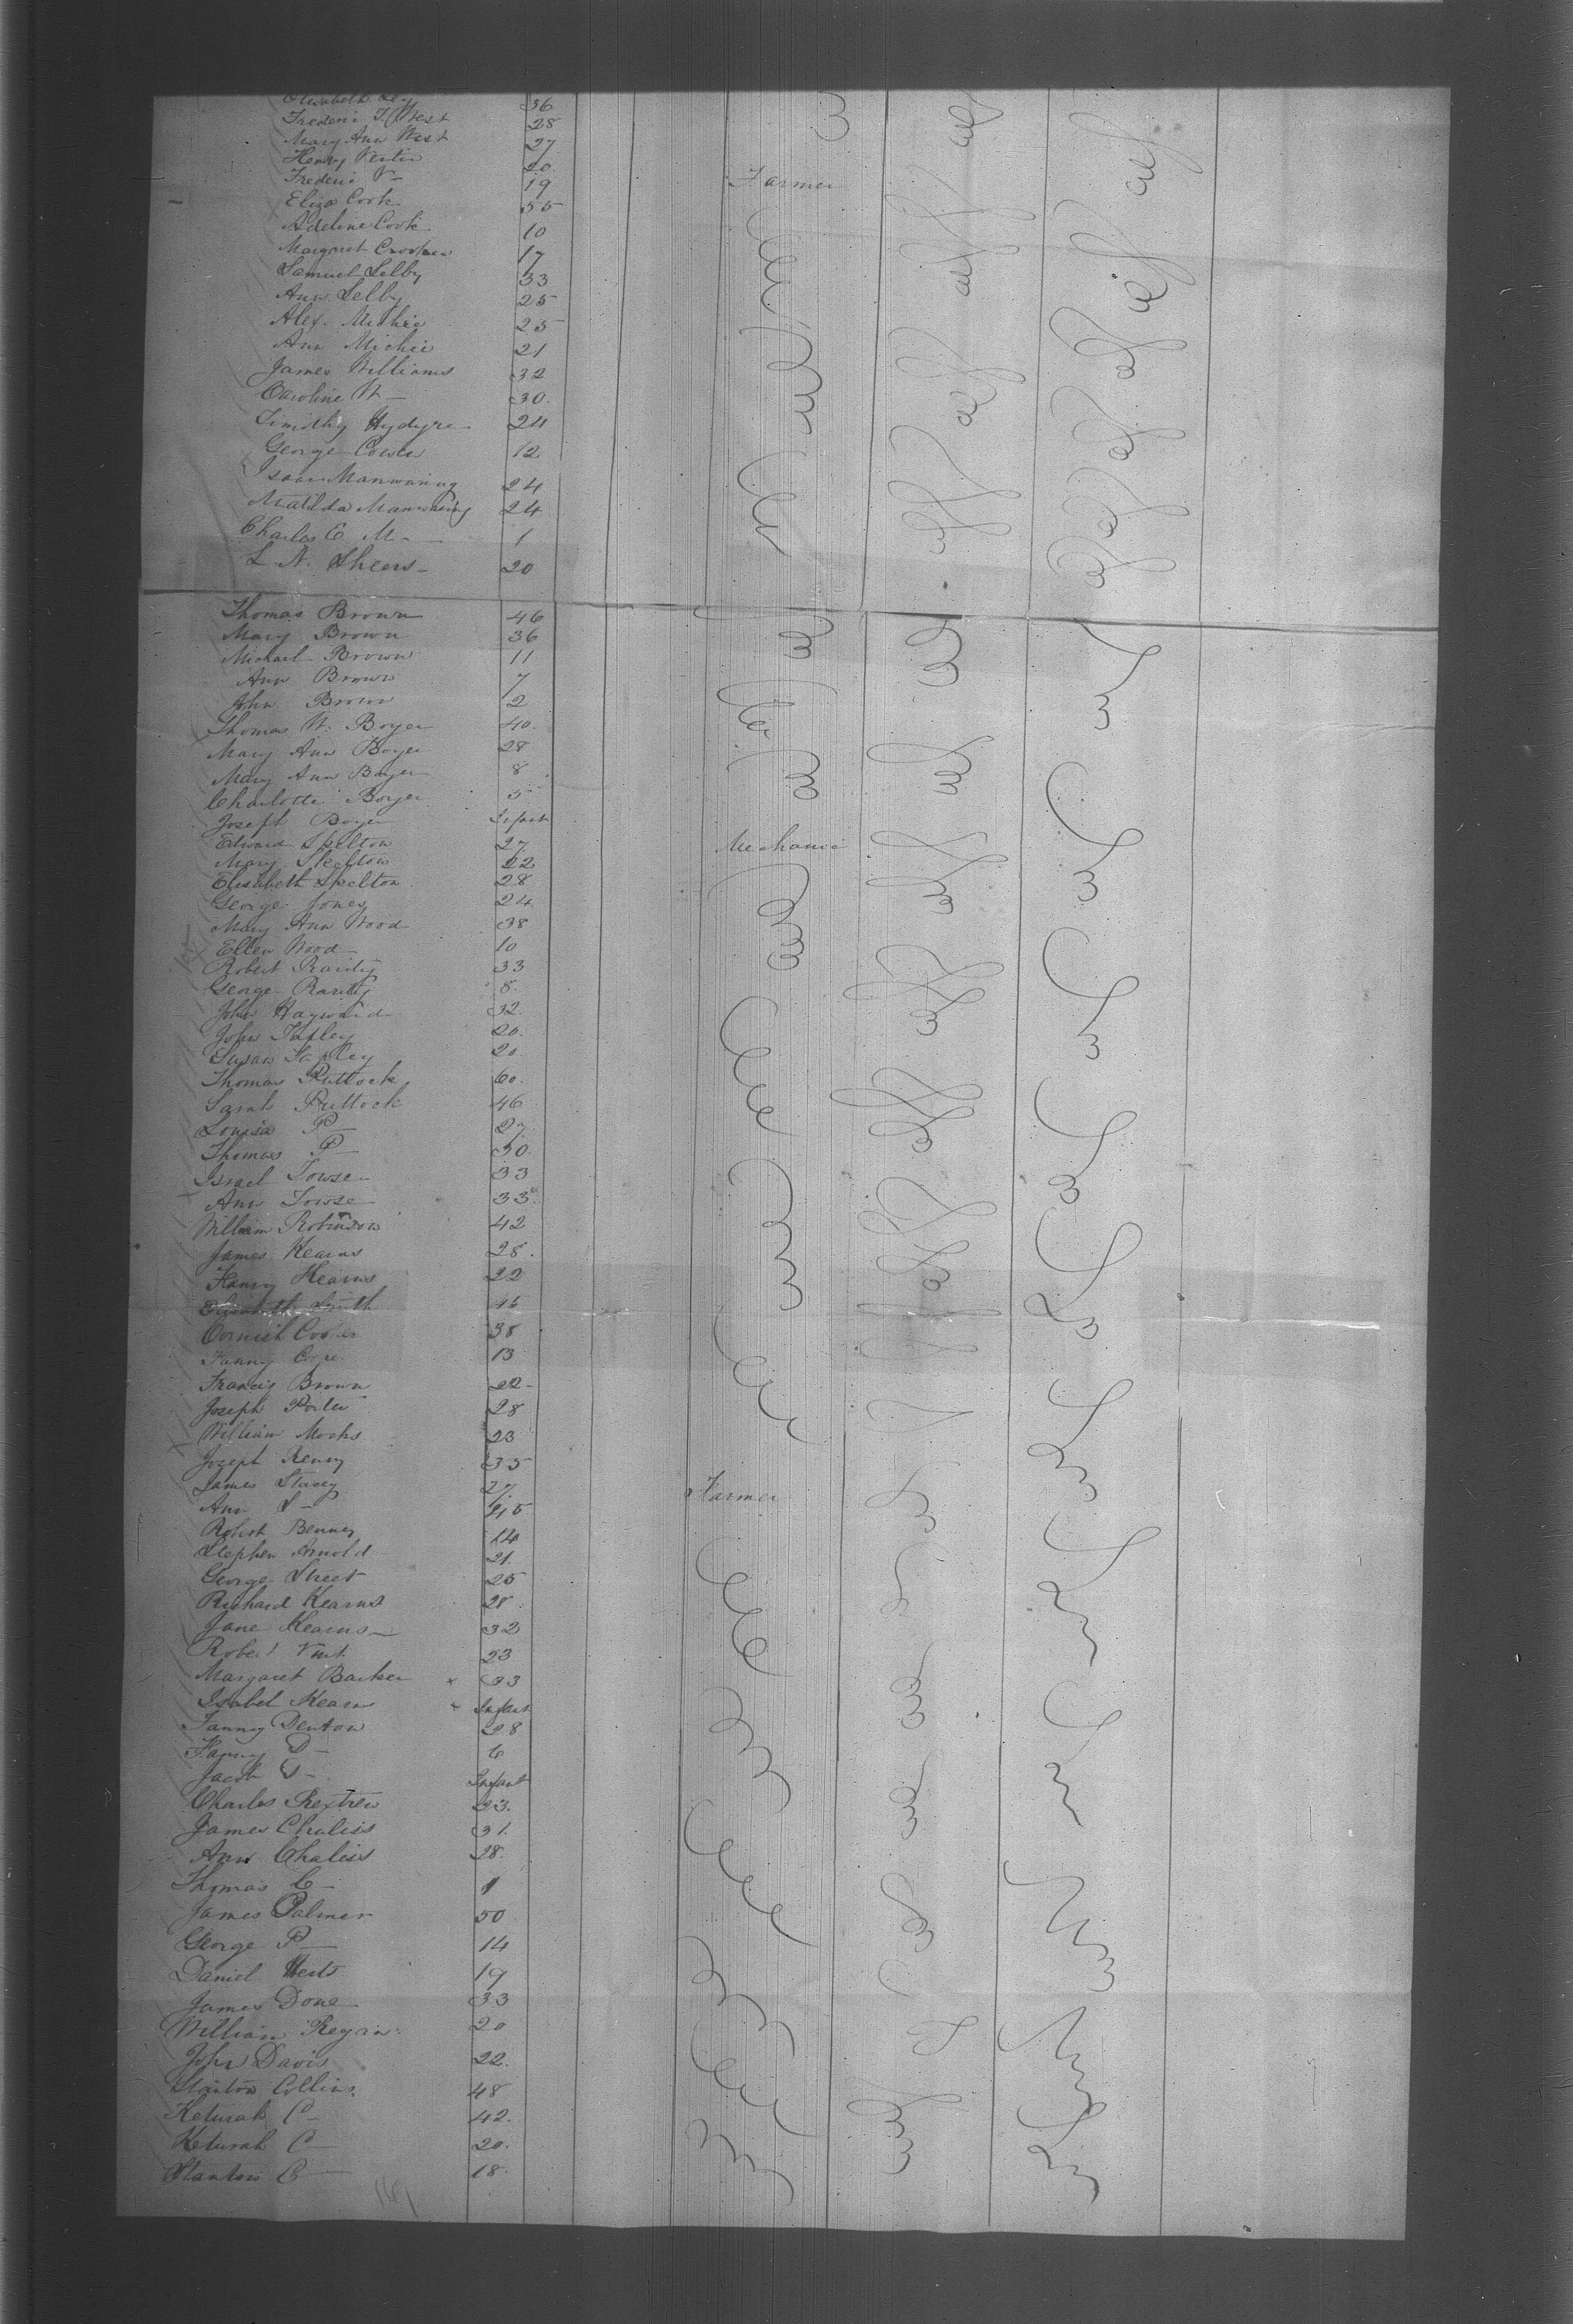 Elisabeth 36
Frederic J. West 28
Mary Ann West 27
Henry 20
Frederic V— 19 Farmer
Eliza Cook 55
Adeline Cook 10
Margaret 17
Samuel Selby 33
Ann Selby 25
Alex. Michie 25
Ann Michie 21
James Williams 32
Caroline W— 30.
Timothy 24
George 12
Isaac Manwaring 24
Matilda Manwaring 24
Charles E. M— 1
L. N. Sheers— 20
Thomas Brown 46
Mary Brown 36
Michael Brown 11
Ann Brown 7
John Brown 2
Thomas W. Boyer 40.
Mary Ann Boyer 28
Mary Ann Boyer 8
Charlotte Boyer 5
Joseph Boyer Infant
Edward Skelton 27 Mechanic
Mary Skelton 22
Elisabeth Skelton 28
George Jones 24
Mary Ann Wood 38
Ellen Wood 10
Robert Rarity 33
George Rarity 8.
John Hayward 32.
John Tapley 20.
Susan Tapley 20
Thomas Puttock 60.
Sarah Puttock 46
Louisa P— 27.
Thomas P— 30.
Israel Towse 33
Ann Towse 33
William Robinson 42
James Kearns 28.
Fanny Kearns 22
Elisabeth Smith
Cornish 38
Fanny 13
Francis Brown 22
Joseph Porter 28
William Mooks 23
Joseph Henry 35
James Stacey 27. Farmer
Ann S—
Robert 14
Stephen Arnold 21.
George Street 25
Richard Kearns 28.
Jane Kearns— 32
Robert Vint 23
Margaret Barker × 33
Isabel Kearn × Infant
Fanny Denton 28
Fanny D— 6
Jacob D— Infant
Charles Rextrew 23.
James Chaliss 31.
Ann Chaliss 28.
Thomas C— 1
James Palmer 50
George P— 14
Daniel 19
James Done 33
William 20
John Davis 22.
Stanton Collins. 48
Keturah C— 42.
Keturah C— 20.
Stanton C— 18.